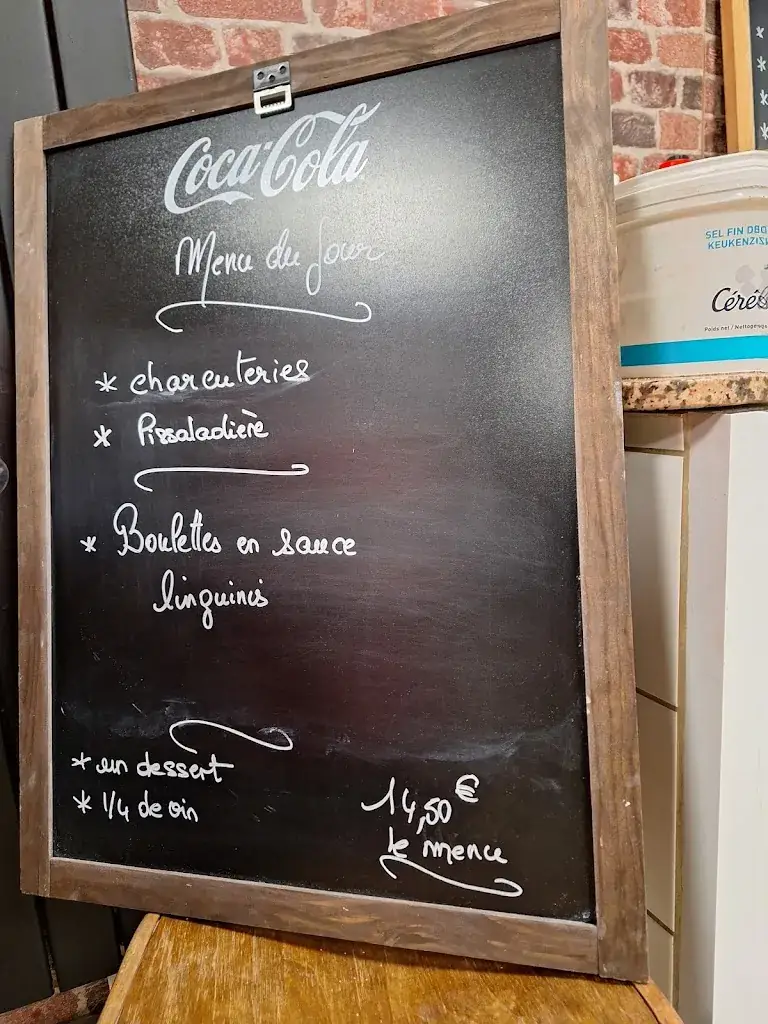 Coca-Cola
Menu du Jour
* charcuteries
* Pissaladière
* Boulettes en sauce
linguinis
* un dessert
* 1/4 de vin
14,50 €
le menu
SEL FIN
KEUKENZ
Poids net / Nettogewicht